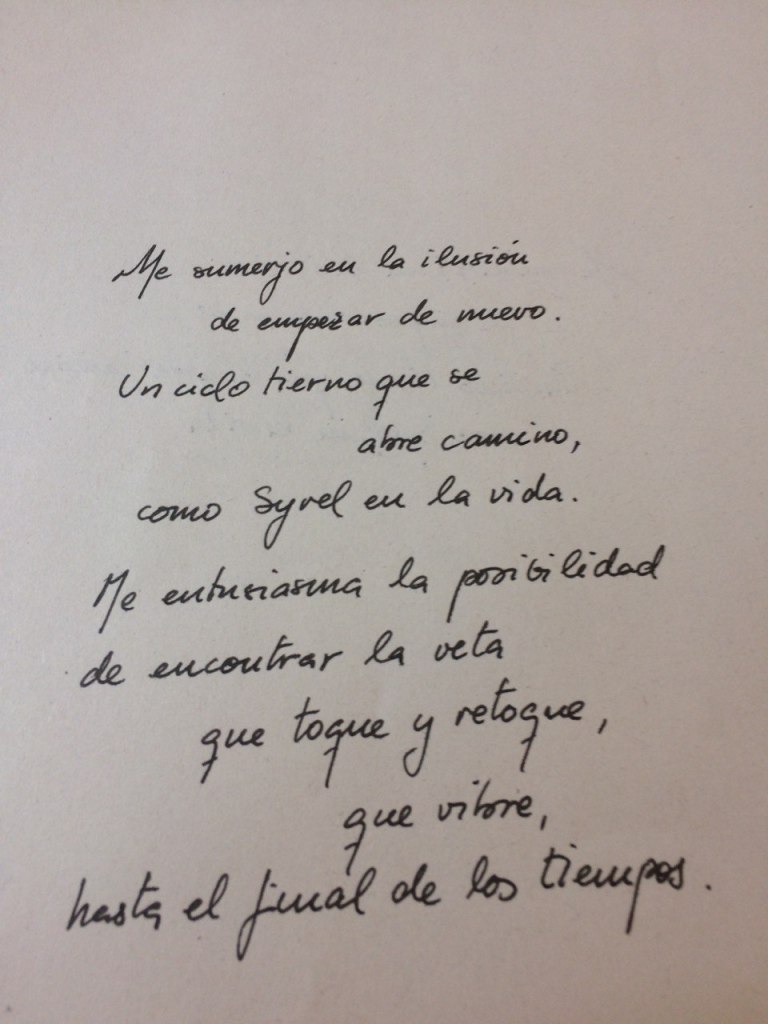 Me sumerjo en la ilusión
de empezar de nuevo.
Un ciclo tierno que se
abre camino,
como Syvel en la vida.
Me entusiasma la posibilidad
de encontrar la veta
que toque y retoque,
que vibre,
hasta el final de los tiempos.